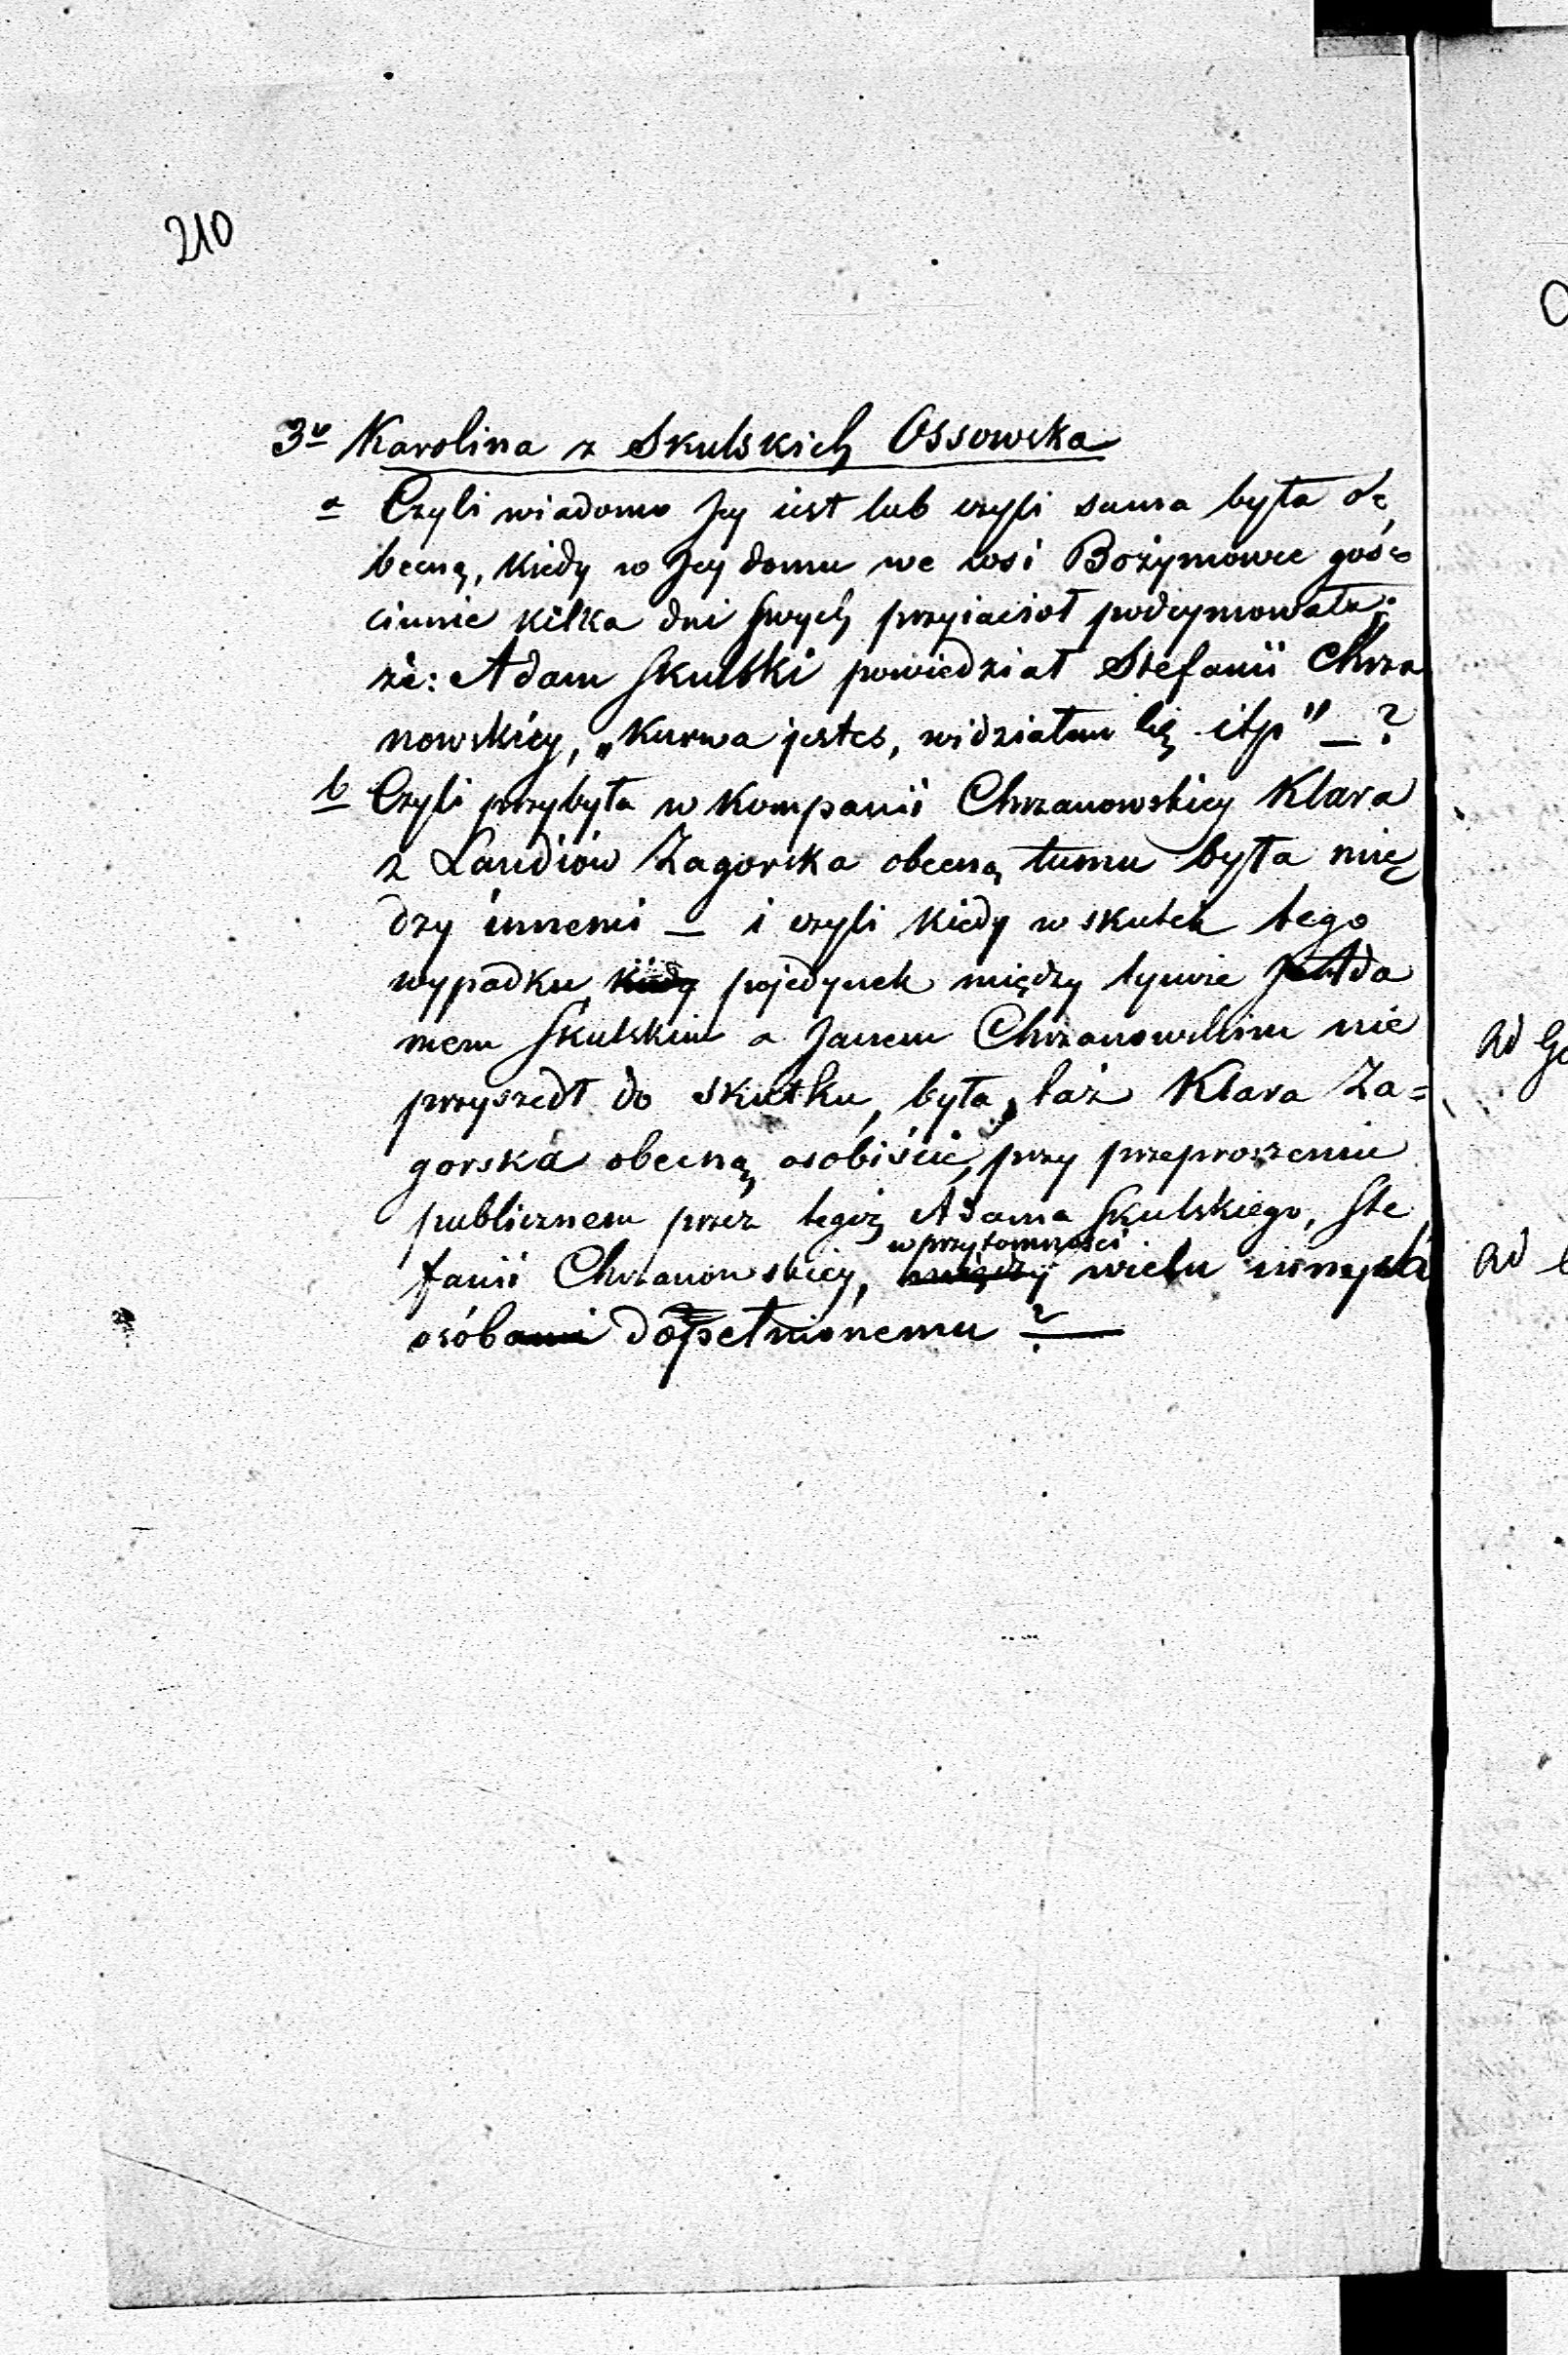 210
3o Karolina z Skulskich Ossowska
a Czyli wiadomo Jey iest lub czyli sama była o-
becną, kiedy w Jey domu we wsi Bożymowce goś-
cinnie kilka dni swych przyiaciół podeymowała;
że: Adam Skulski powiedział Stefanii Chrza
nowskiey, „Kurwa jestes, widziałem Cię itp" — ?
b Czyli przybyła w kompanii Chrzanowskiey Klara
z Landiów Zagorska obecną temu była mię
dzy innemi — i czyli kiedy w skutek tego
wypadku, kiedy pojedynek między tymże Ada
mem Skulskim a Janem Chrzanowskim nie
przyszedł do skutku, była taż Klara Za=
gorska obecną osobiście, przy przeproszeniu
publicznem przez tegoż Adama Skulskiego, Ste
w przytomności
fanii Chrzanowskiey, między wielu innych
osóbami dopełnionemu ?—
ad
ad